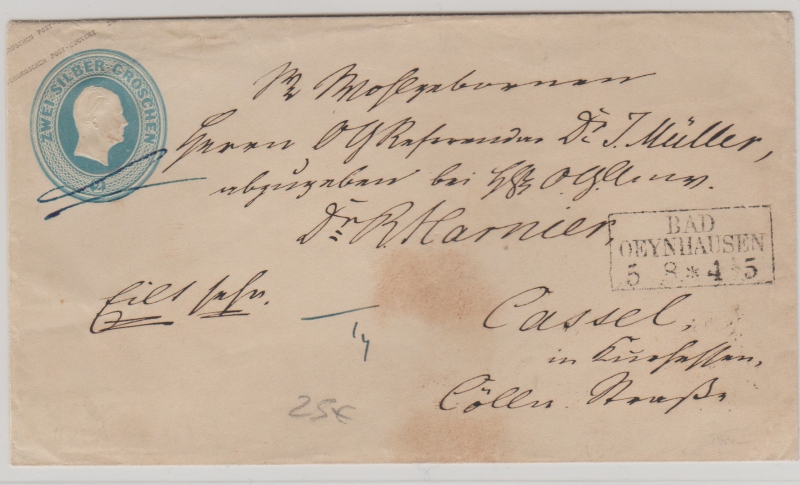 ZWEI SILBER GROSCHEN
2
Sr Wohlgebornen
Herrn OGReferendar Dr. J. Müller,
abzugeben bei H. O.G.Anw.
Dr. R. Harnier,
BAD
OEYNHAUSEN
5 8 * 4-5
Eilt sehr.
Cassel,
in Kurhessen,
Cölln. Straße
25€